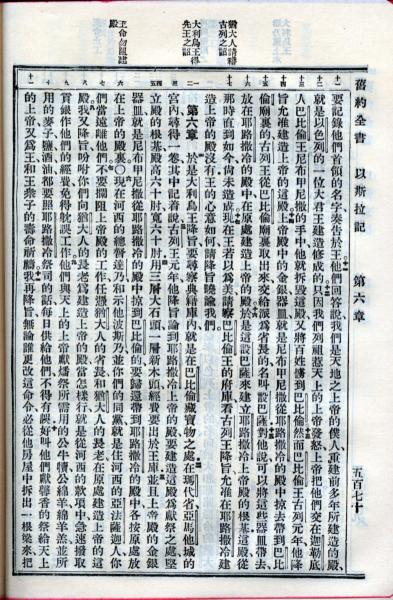 舊約全書 以斯拉記 第六章 五百七十
猶大人請稽
古列之詔
大利烏王得
先王之詔
王命勿阻建
殿
要記錄他們首領的名字奏告於王他們回答說我們是天地之上帝的僕人重建前多年所建造的殿
就是以色列的一位大君王建造修成的只因我們列祖惹天上的上帝發怒上帝把他們交在迦勒底
人巴比倫王尼布甲尼撒的手中他就拆毀這殿又將百姓擄到巴比倫然而巴比倫王古列元年他降
旨允准建造上帝的這殿上帝殿中的金銀器皿就是尼布甲尼撒從耶路撒冷的殿中掠去帶到巴比
倫廟裏的古列王從巴比倫廟裏取出來交給派為省長的名叫設巴薩對他說可以將這些器皿帶去
放在耶路撒冷的殿中在原處建造上帝的殿於是這設巴薩來建立耶路撒冷上帝殿的根基這殿從
那時直到如今尚未造成現在王若以為美請察巴比倫王的府庫看古列王降旨允准在耶路撒冷建
造上帝的殿沒有王的心意如何請降旨曉諭我們
第六章 於是大利烏王降旨要尋察典籍庫內就是在巴比倫藏寶物之處在瑪代省亞馬他城的
宮內尋得一卷其中記着說古列王元年他降旨論到耶路撒冷上帝的殿要建造這殿為獻祭之處堅
立殿的根基殿高六十肘寬六十肘用三層大石頭一層新木頭經費要出於王庫並且上帝殿的金銀
器皿就是尼布甲尼撒從耶路撒冷的殿中掠到巴比倫的要歸還帶到耶路撒冷的殿中各按原處放
在上帝的殿裏○現在河西的總督達乃和示他波斯乃並你們的同黨就是住河西的亞法薩迦人你
們當遠離他們不要攔阻上帝殿的工作任憑猶大人的省長和猶大人的長老在原處建造上帝的這
殿我又降旨吩咐你們向猶大人的長老為建造上帝的殿當怎樣行就是從河西的款項中急速撥取
貢銀作他們的經費免得耽誤工作他們與天上的上帝獻燔祭所需用的公牛犢公綿羊綿羊羔並所
用的麥子鹽酒油都要照耶路撒冷祭司的話每日供給他們不得有誤好叫他們獻馨香的祭給天上
的上帝又為王和王衆子的壽命祈禱我再降旨無論誰更改這命令必從他房屋中拆出一根梁來把